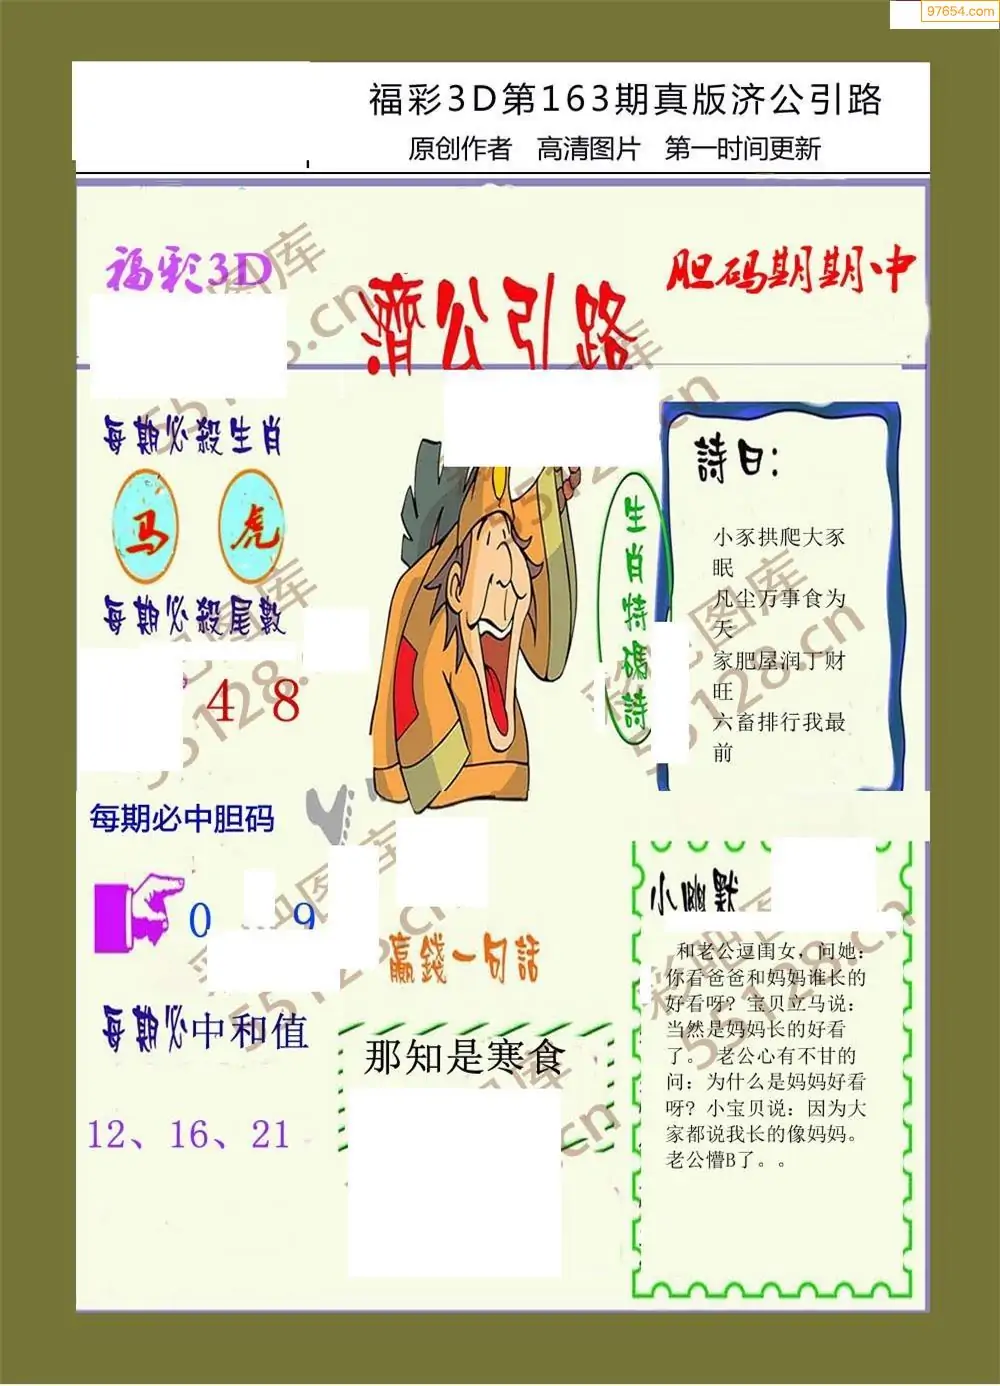 97654.com
福彩3D第163期真版济公引路
原创作者 高清图片 第一时间更新
福彩3D
濟公引路
胆码期期中
每期必殺生肖
马 虎
每期必殺尾數
4 8
每期必中胆码
0 9
每期必中和值
12、16、21
生肖特碼詩
詩曰:
小豕拱爬大豕
眠
凡尘万事食为
天
家肥屋润丁财
旺
六畜排行我最
前
赢錢一句話
那知是寒食
小幽默
和老公逗闺女，问她：
你看爸爸和妈妈谁长的
好看呀？宝贝立马说：
当然是妈妈长的好看
了。 老公心有不甘的
问：为什么是妈妈好看
呀？小宝贝说：因为大
家都说我长的像妈妈。
老公懵B了。。